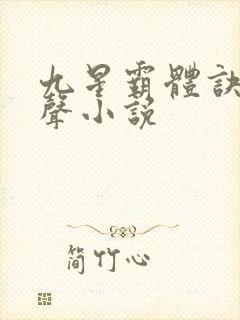 九星霸體訣
聲小說
簡竹心